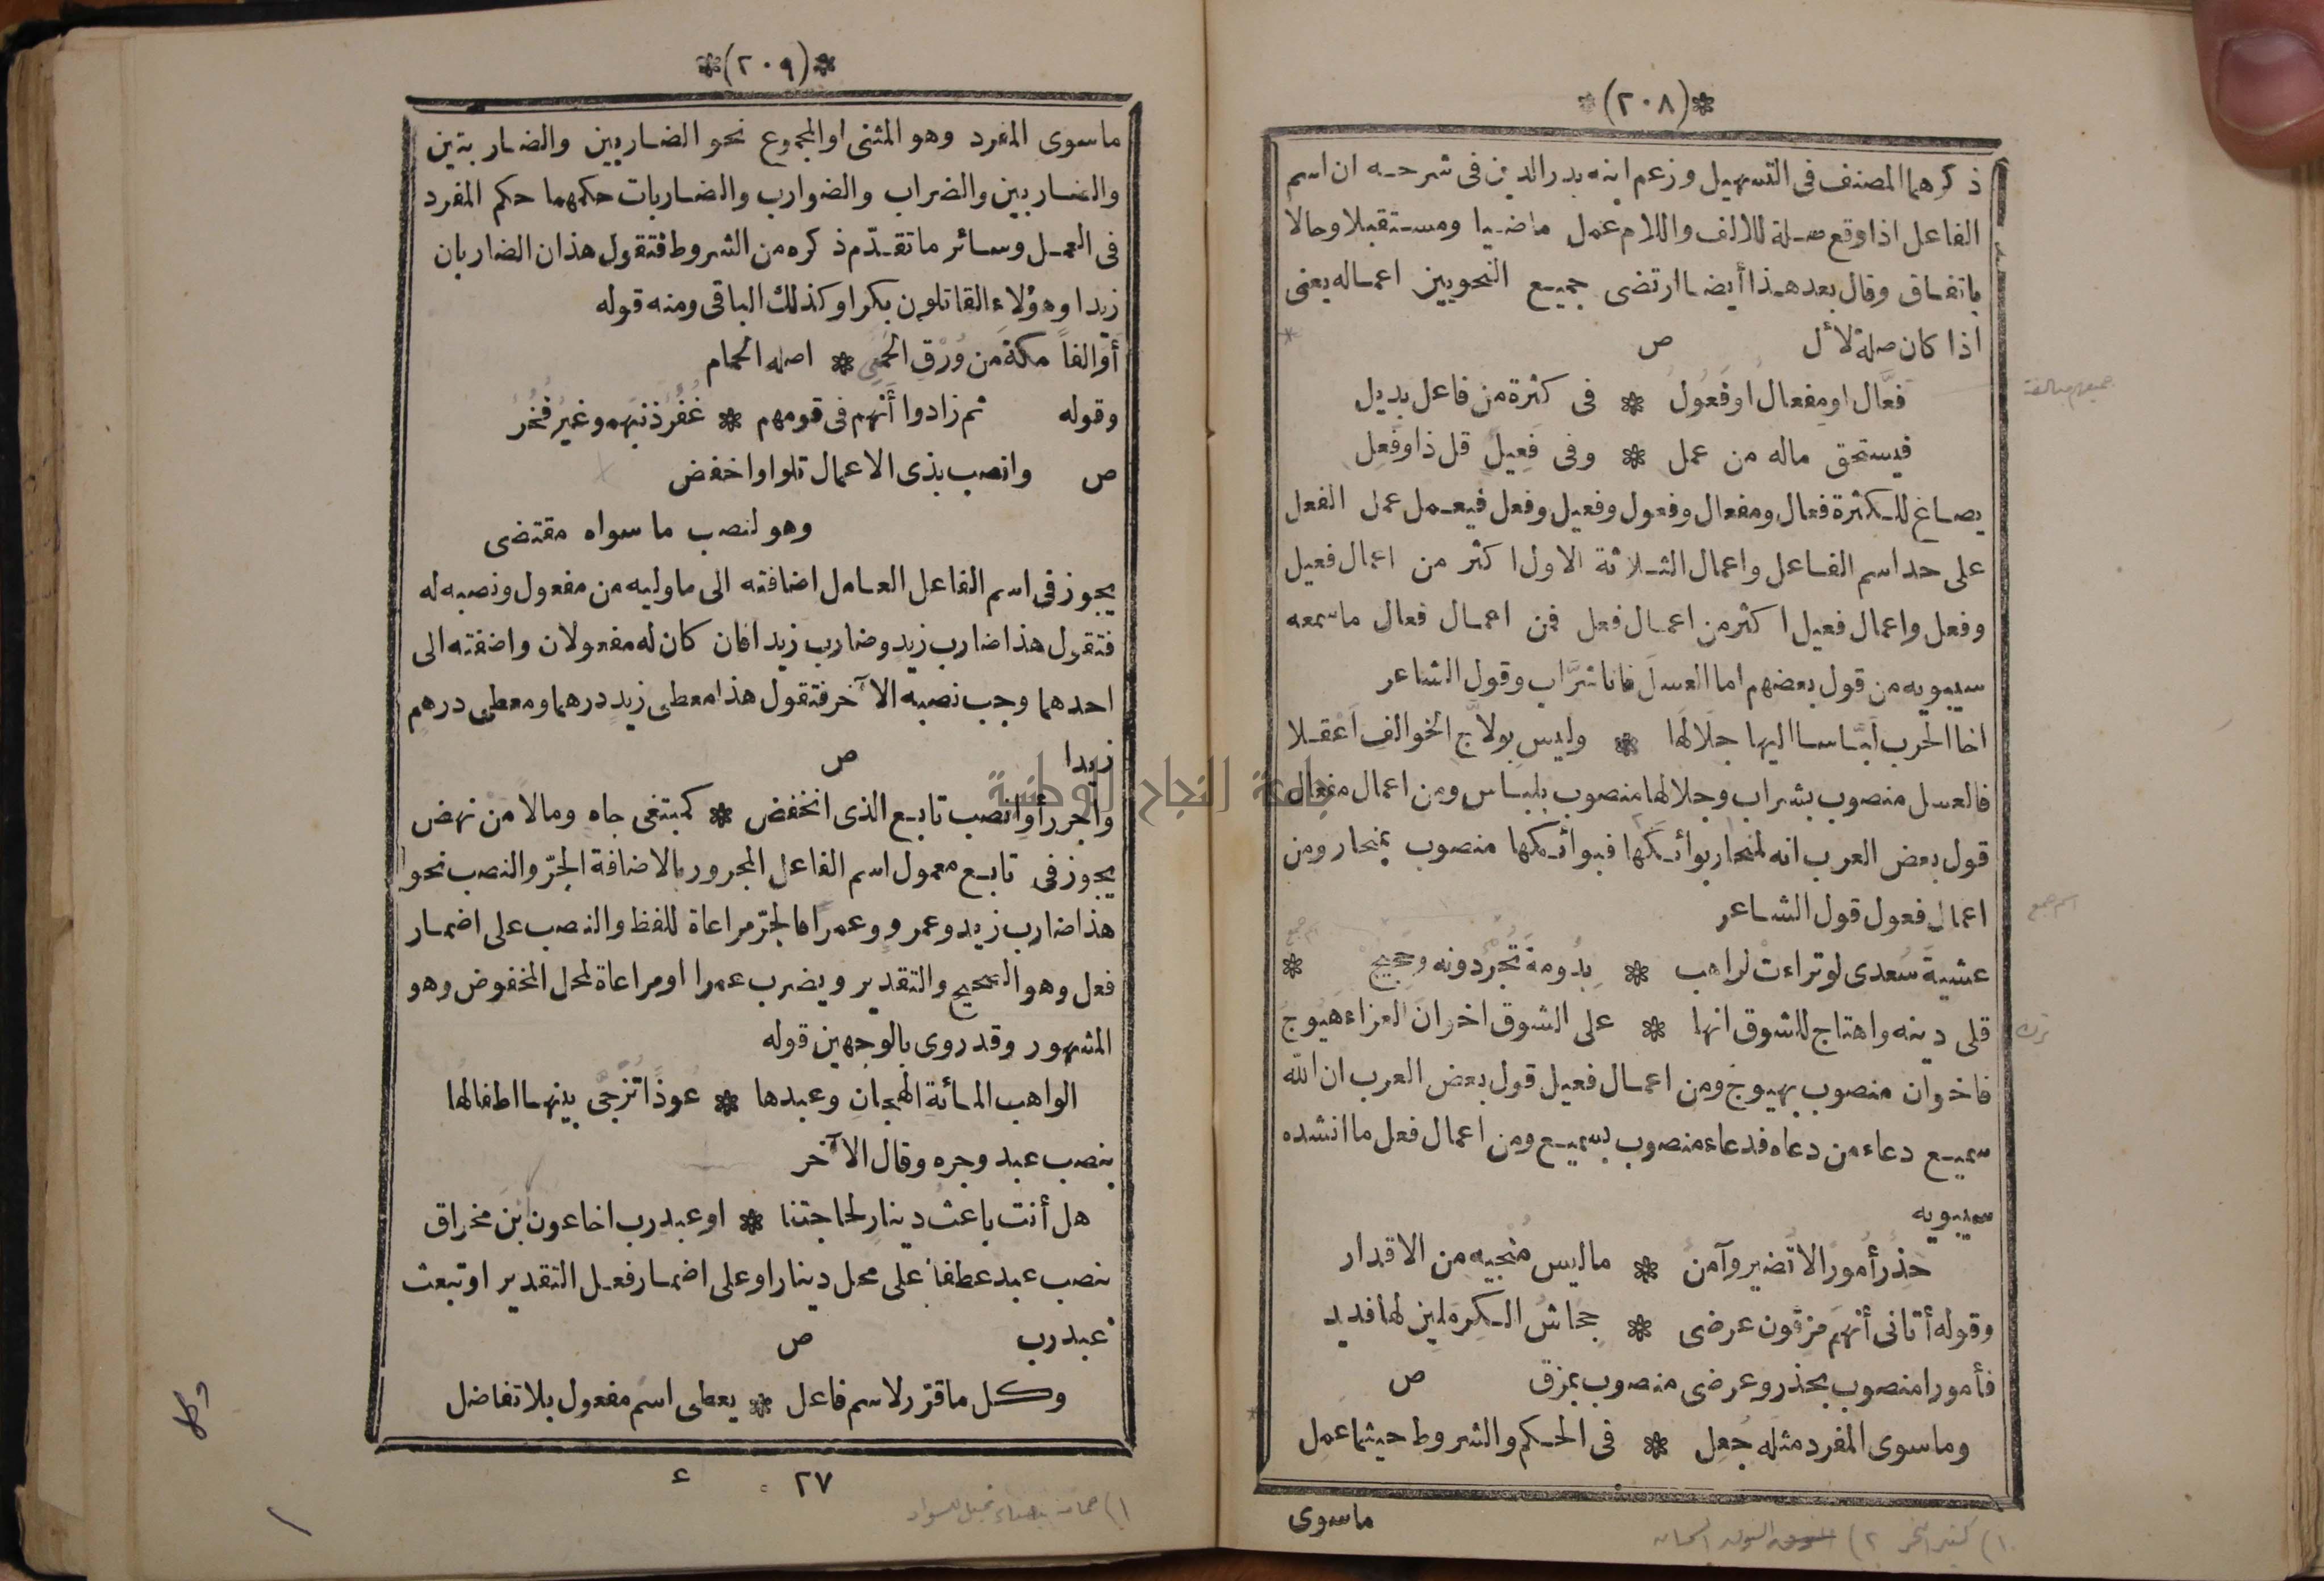 ❊(٢٠٨)❊
ذكرهما المصنف فى التسهيل وزعم ابنه بدر الدين فى شرحه ان اسم
الفاعل اذا وقع صلة للالف واللام عمل ماضيا ومستقبلا وحالا
باتفاق وقال بعد هذا أيضا ارتضى جميع النحويين اعماله يعنى
اذا كان صلة لأل ص
فعَّال او مفعال او فَعُول ❊ فى كثرة من فاعل بديل
فيستحق ماله من عمل ❊ وفى فَعِيل قل ذا وفَعِل
يصاغ للكثرة فعال ومفعال وفعول وفعيل وفعل فيعمل عمل الفعل
على حد اسم الفاعل واعمال الثلاثة الاول اكثر من اعمال فعيل
وفعل واعمال فعيل اكثر من اعمال فعل فمن اعمال فعال ما سمعه
سيبويه من قول بعضهم اما العسلَ فانا شرَّاب وقول الشاعر
اخا الحرب لَبَّاسا اليها جلالَها ❊ وليس بولاَّج الخوالفِ اعقلا
فالعسل منصوب بشراب وجلالها منصوب بلباس ومن اعمال مفعال
قول بعض العرب انه لمنحار بوائكها فبوائكها منصوب بمنحار ومن
اعمال فعول قول الشاعر
عشيةَ سُعدى لو تراءتْ لراهب ❊ بِدُومةَ تُجْرُ دونه وحَجيجُ ❊
قلى دينه واهتاج للشوق انها ❊ على الشوق اخوانَ العزاء هَيُوجُ
فاخوان منصوب بهيوج ومن اعمال فعيل قول بعض العرب ان الله
سميع دعاء من دعاه فدعاء منصوب بسميع ومن اعمال فعل ما انشده
سيبويه
حَذِرٌ أمورًا لا تَضير وآمنٌ ❊ ما ليس مُنْجيه من الاقدار
وقوله أتانى أنهم مزقون عرضى ❊ جحاشُ الكرملين لها فديد
فأمورا منصوب بحذر وعرضى منصوب بمزق ص
وما سوى المفرد مثله جُعِل ❊ فى الحكم والشروط حيثما عَمِل
ماسوى
❊(٢٠٩)❊
ما سوى المفرد وهو المثنى او المجموع نحو الضاربين والضاربتين
والضاربين والضراب والضوارب والضاربات حكمهما حكم المفرد
فى العمل وسائر ما تقدّم ذكره من الشروط فتقول هذان الضاربان
زيدا وهؤلاء القاتلون بكرا وكذلك الباقى ومنه قوله
أوَالفاً مكةَ من وُرْقِ الحَمِى ❊ اصله الحمام
وقوله ثم زادوا أَنهم فى قومهم ❊ غُفُرٌ ذنبَهم وغيرُ فُخُرْ
ص وانصب بذى الاعمال تلوا واخفض
وهو لنصب ما سواه مقتضى
يجوز فى اسم الفاعل العامل اضافته الى ما وليه من مفعول ونصبه له
فتقول هذا ضارب زيدٍ وضارب زيدا فان كان له مفعولان واضفته الى
احدهما وجب نصبه الآخر فتقول هذا معطى زيدٍ درهما ومعطى درهمٍ
زيدا ص
واجرر أو انصب تابع الذى انخفض ❊ كمبتغى جاهٍ ومالاً من نهض
يجوز فى تابع معمول اسم الفاعل المجرور بالاضافة الجرّ والنصب نحو
هذا ضارب زيد وعمرٍو وعمراً فالجرّ مراعاة للفظ والنصب على اضمار
فعل وهو الصحيح والتقدير ويضرب عمرا او مراعاة لمحل المخفوض وهو
المشهور وقد روى بالوجهين قوله
الواهب المائةِ الهجانِ وعبدها ❊ عُوذًا تُزَجّى بينها اطفالُها
بنصب عبد وجره وقال الآخر
هل أنت باعث دينارٍ لحاجتنا ❊ او عبدَ رب اخا عون بْنَ مخراق
بنصب عبد عطفا على محل دينار او على اضمار فعل التقدير او تبعث
عبد رب ص
وكل ما قرّر لاسم فاعل ❊ يعطى اسم مفعول بلا تفاضل
٢٧ ع
جامعة النجاح الوطنية